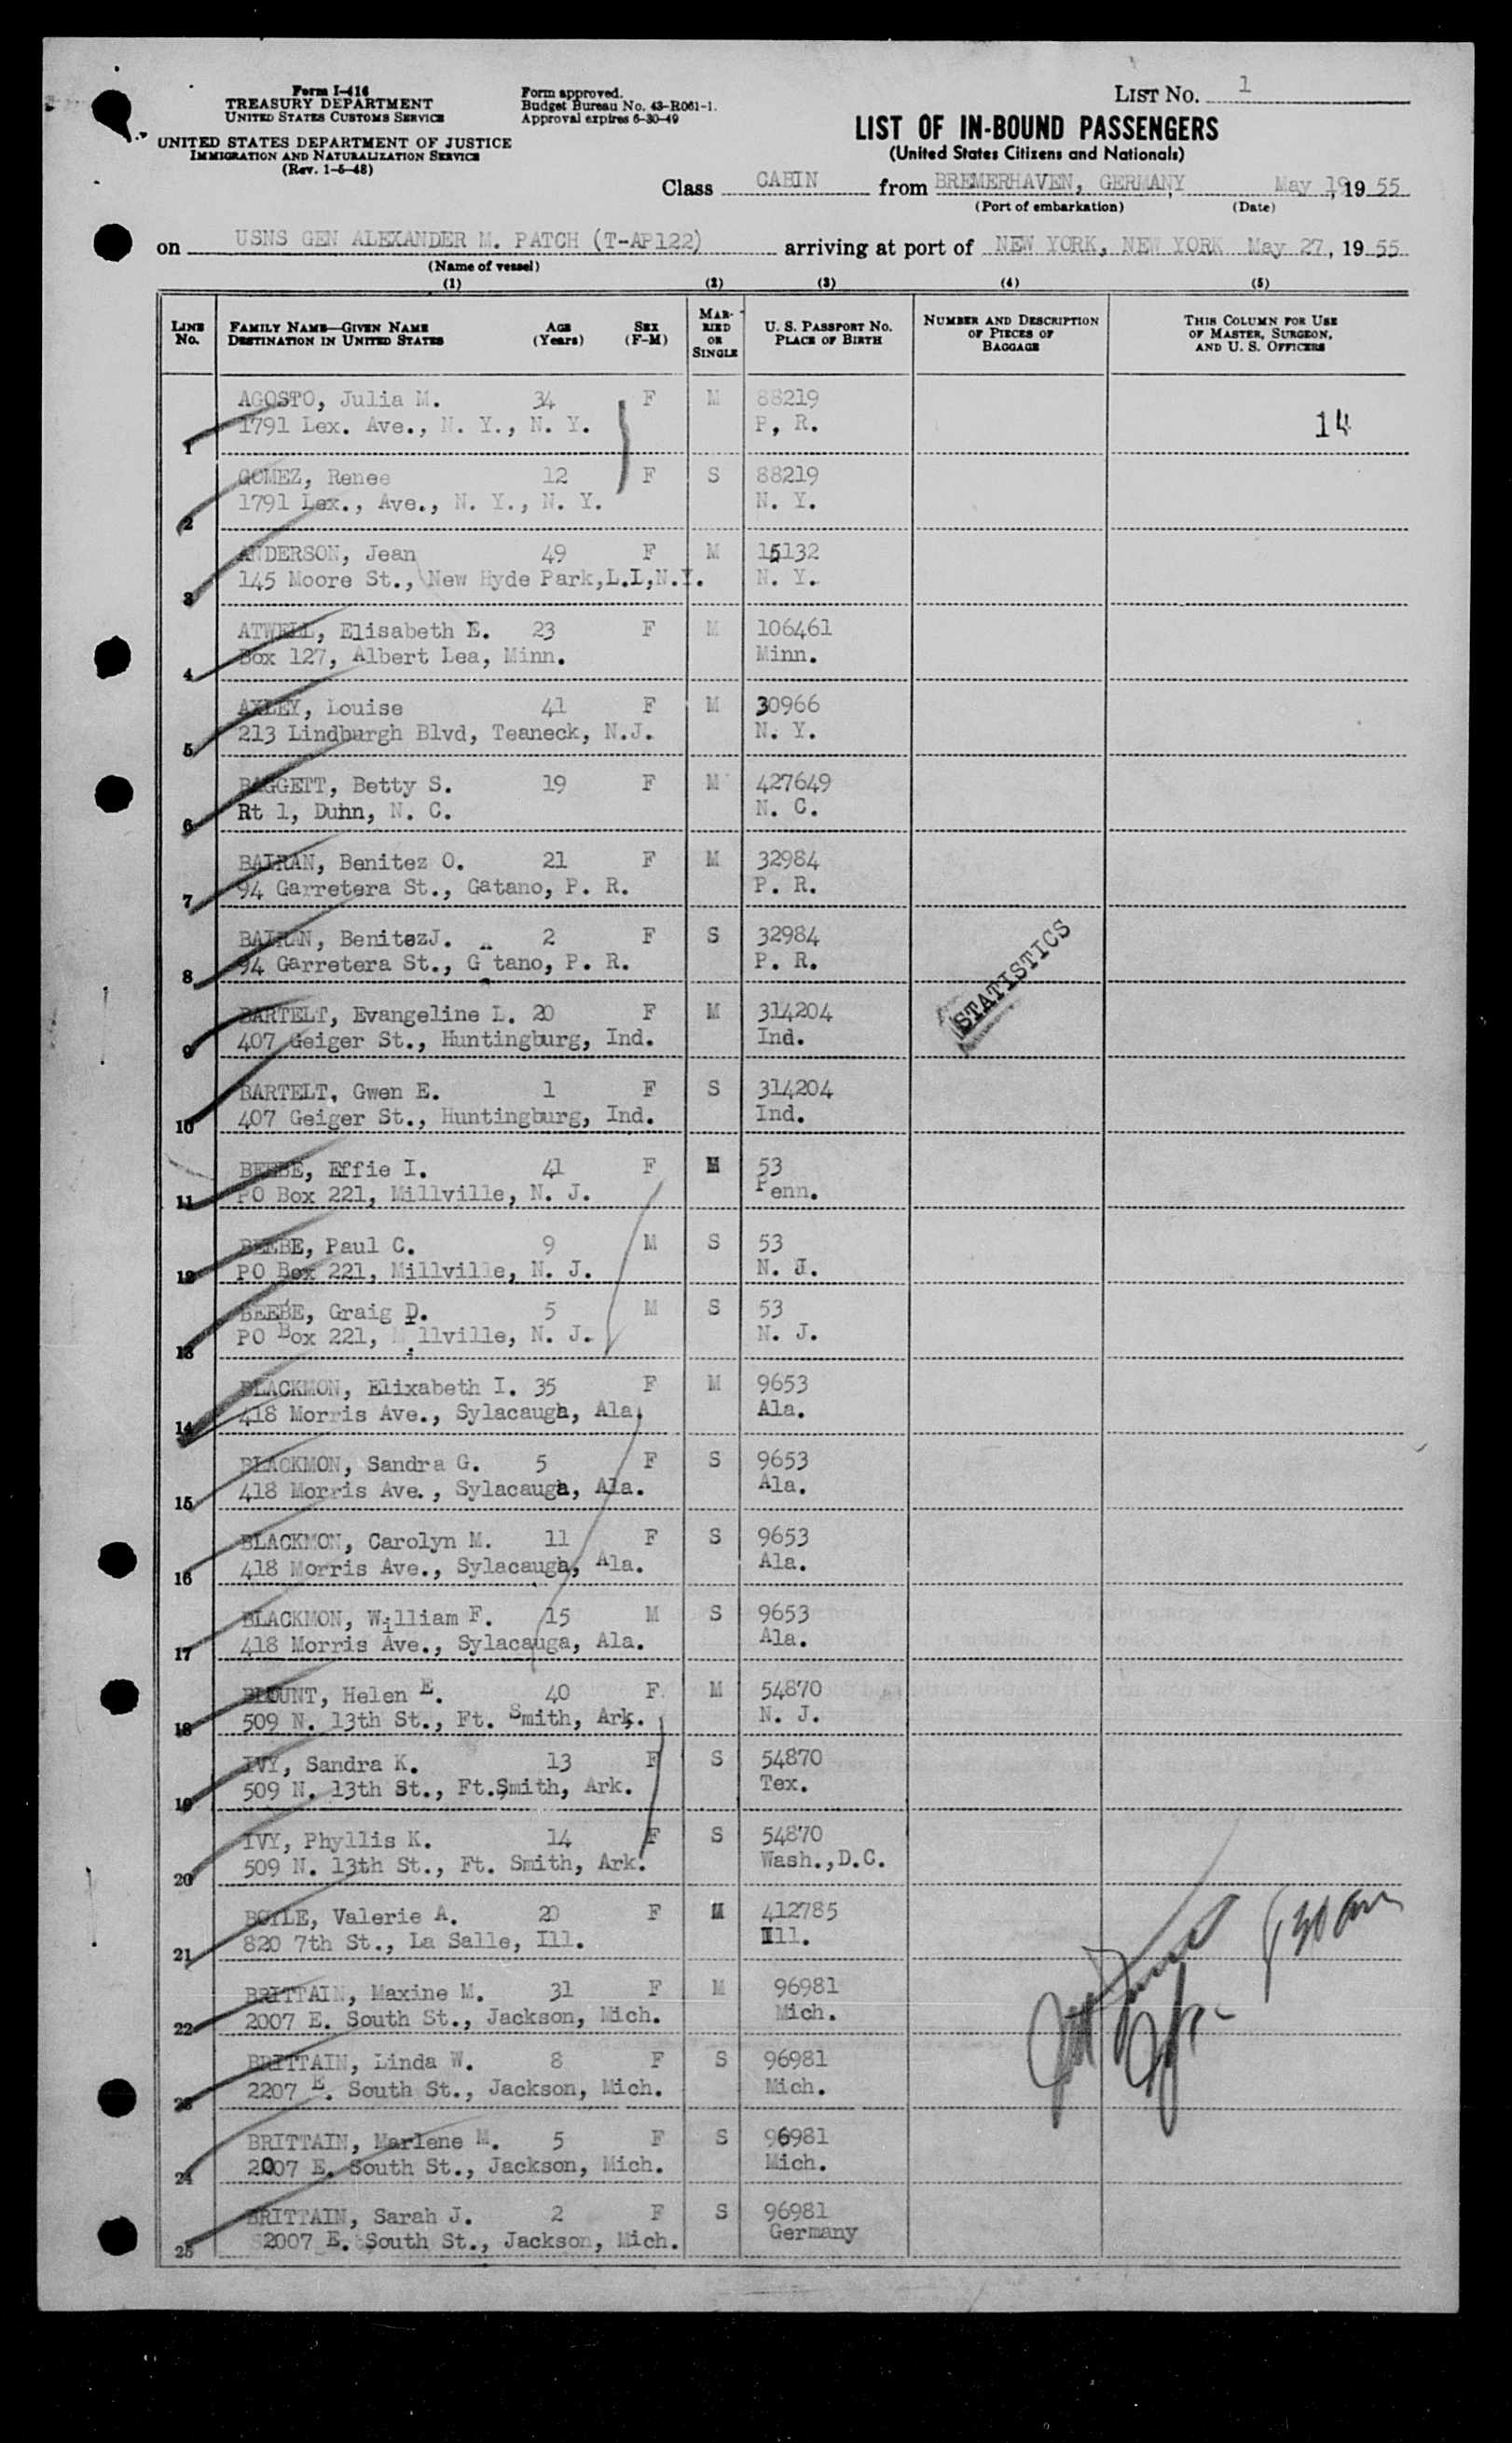 Form I-416
TREASURY DEPARTMENT
UNITED STATES CUSTOMS SERVICE
UNITED STATES DEPARTMENT OF JUSTICE
IMMIGRATION AND NATURALIZATION SERVICE
(Rev. 1-5-48)
Form approved.
Budget Bureau No. 43-R061-1.
Approval expires 6-30-49
LIST NO. 1
LIST OF IN-BOUND PASSENGERS
(United States Citizens and Nationals)
Class CABIN from BREMERHAVEN, GERMANY, May 19, 19 55
(Port of embarkation) (Date)
on USNS GEN ALEXANDER M. PATCH (T-AP122) arriving at port of NEW YORK, NEW YORK May 27, 19 55
(Name of vessel)
(1) (2) (3) (4) (5)
LINE NO. FAMILY NAME—GIVEN NAME DESTINATION IN UNITED STATES AGE (YEARS) SEX (F-M) MARRIED OR SINGLE U. S. PASSPORT NO. PLACE OF BIRTH NUMBER AND DESCRIPTION OF PIECES OF BAGGAGE THIS COLUMN FOR USE OF MASTER, SURGEON, AND U. S. OFFICERS
AGOSTO, Julia M. 34 F M 88219
1 1791 Lex. Ave., N. Y., N. Y. P, R. 14
GOMEZ, Renee 12 F S 88219
2 1791 Lex., Ave., N. Y., N. Y. N. Y.
ANDERSON, Jean 49 F M 15132
3 145 Moore St., New Hyde Park,L.I,N.Y. N. Y.
ATWELL, Elisabeth E. 23 F M 106461
4 Box 127, Albert Lea, Minn. Minn.
AXLEY, Louise 41 F M 30966
5 213 Lindburgh Blvd, Teaneck, N.J. N. Y.
BAGGETT, Betty S. 19 F M 427649
6 Rt 1, Duhn, N. C. N. C.
BAIRAN, Benitez O. 21 F M 32984
7 94 Garretera St., Gatano, P. R. P. R.
BAIRAN, BenitezJ. 2 F S 32984
8 94 Garretera St., G tano, P. R. P. R.
STATISTICS
BARTELT, Evangeline L. 20 F M 314204
9 407 Geiger St., Huntingburg, Ind. Ind.
BARTELT, Gwen E. 1 F S 314204
10 407 Geiger St., Huntingburg, Ind. Ind.
BEEBE, Effie I. 41 F M 53
11 PO Box 221, Millville, N. J. Penn.
BEEBE, Paul C. 9 M S 53
12 PO Box 221, Millville, N. J. N. J.
BEEBE, Graig D. 5 M S 53
13 PO Box 221, M llville, N. J. N. J.
BLACKMON, Elixabeth I. 35 F M 9653
14 418 Morris Ave., Sylacauga, Ala. Ala.
BLACKMON, Sandra G. 5 F S 9653
15 418 Morris Ave., Sylacauga, Ala. Ala.
BLACKMON, Carolyn M. 11 F S 9653
16 418 Morris Ave., Sylacauga, Ala. Ala.
BLACKMON, William F. 15 M S 9653
17 418 Morris Ave., Sylacauga, Ala. Ala.
BLOUNT, Helen E. 40 F M 54870
18 509 N. 13th St., Ft. Smith, Ark. N. J.
IVY, Sandra K. 13 F S 54870
19 509 N. 13th St., Ft.Smith, Ark. Tex.
IVY, Phyllis K. 14 F S 54870
20 509 N. 13th St., Ft. Smith, Ark. Wash.,D.C.
BOYLE, Valerie A. 20 F M 412785
21 820 7th St., La Salle, Ill. Ill.
BRITTAIN, Maxine M. 31 F M 96981
22 2007 E. South St., Jackson, Mich. Mich.
BRITTAIN, Linda W. 8 F S 96981
23 2207 E. South St., Jackson, Mich. Mich.
BRITTAIN, Marlene M. 5 F S 96981
24 2007 E. South St., Jackson, Mich. Mich.
BRITTAIN, Sarah J. 2 F S 96981
25 2007 E. South St., Jackson, Mich. Germany